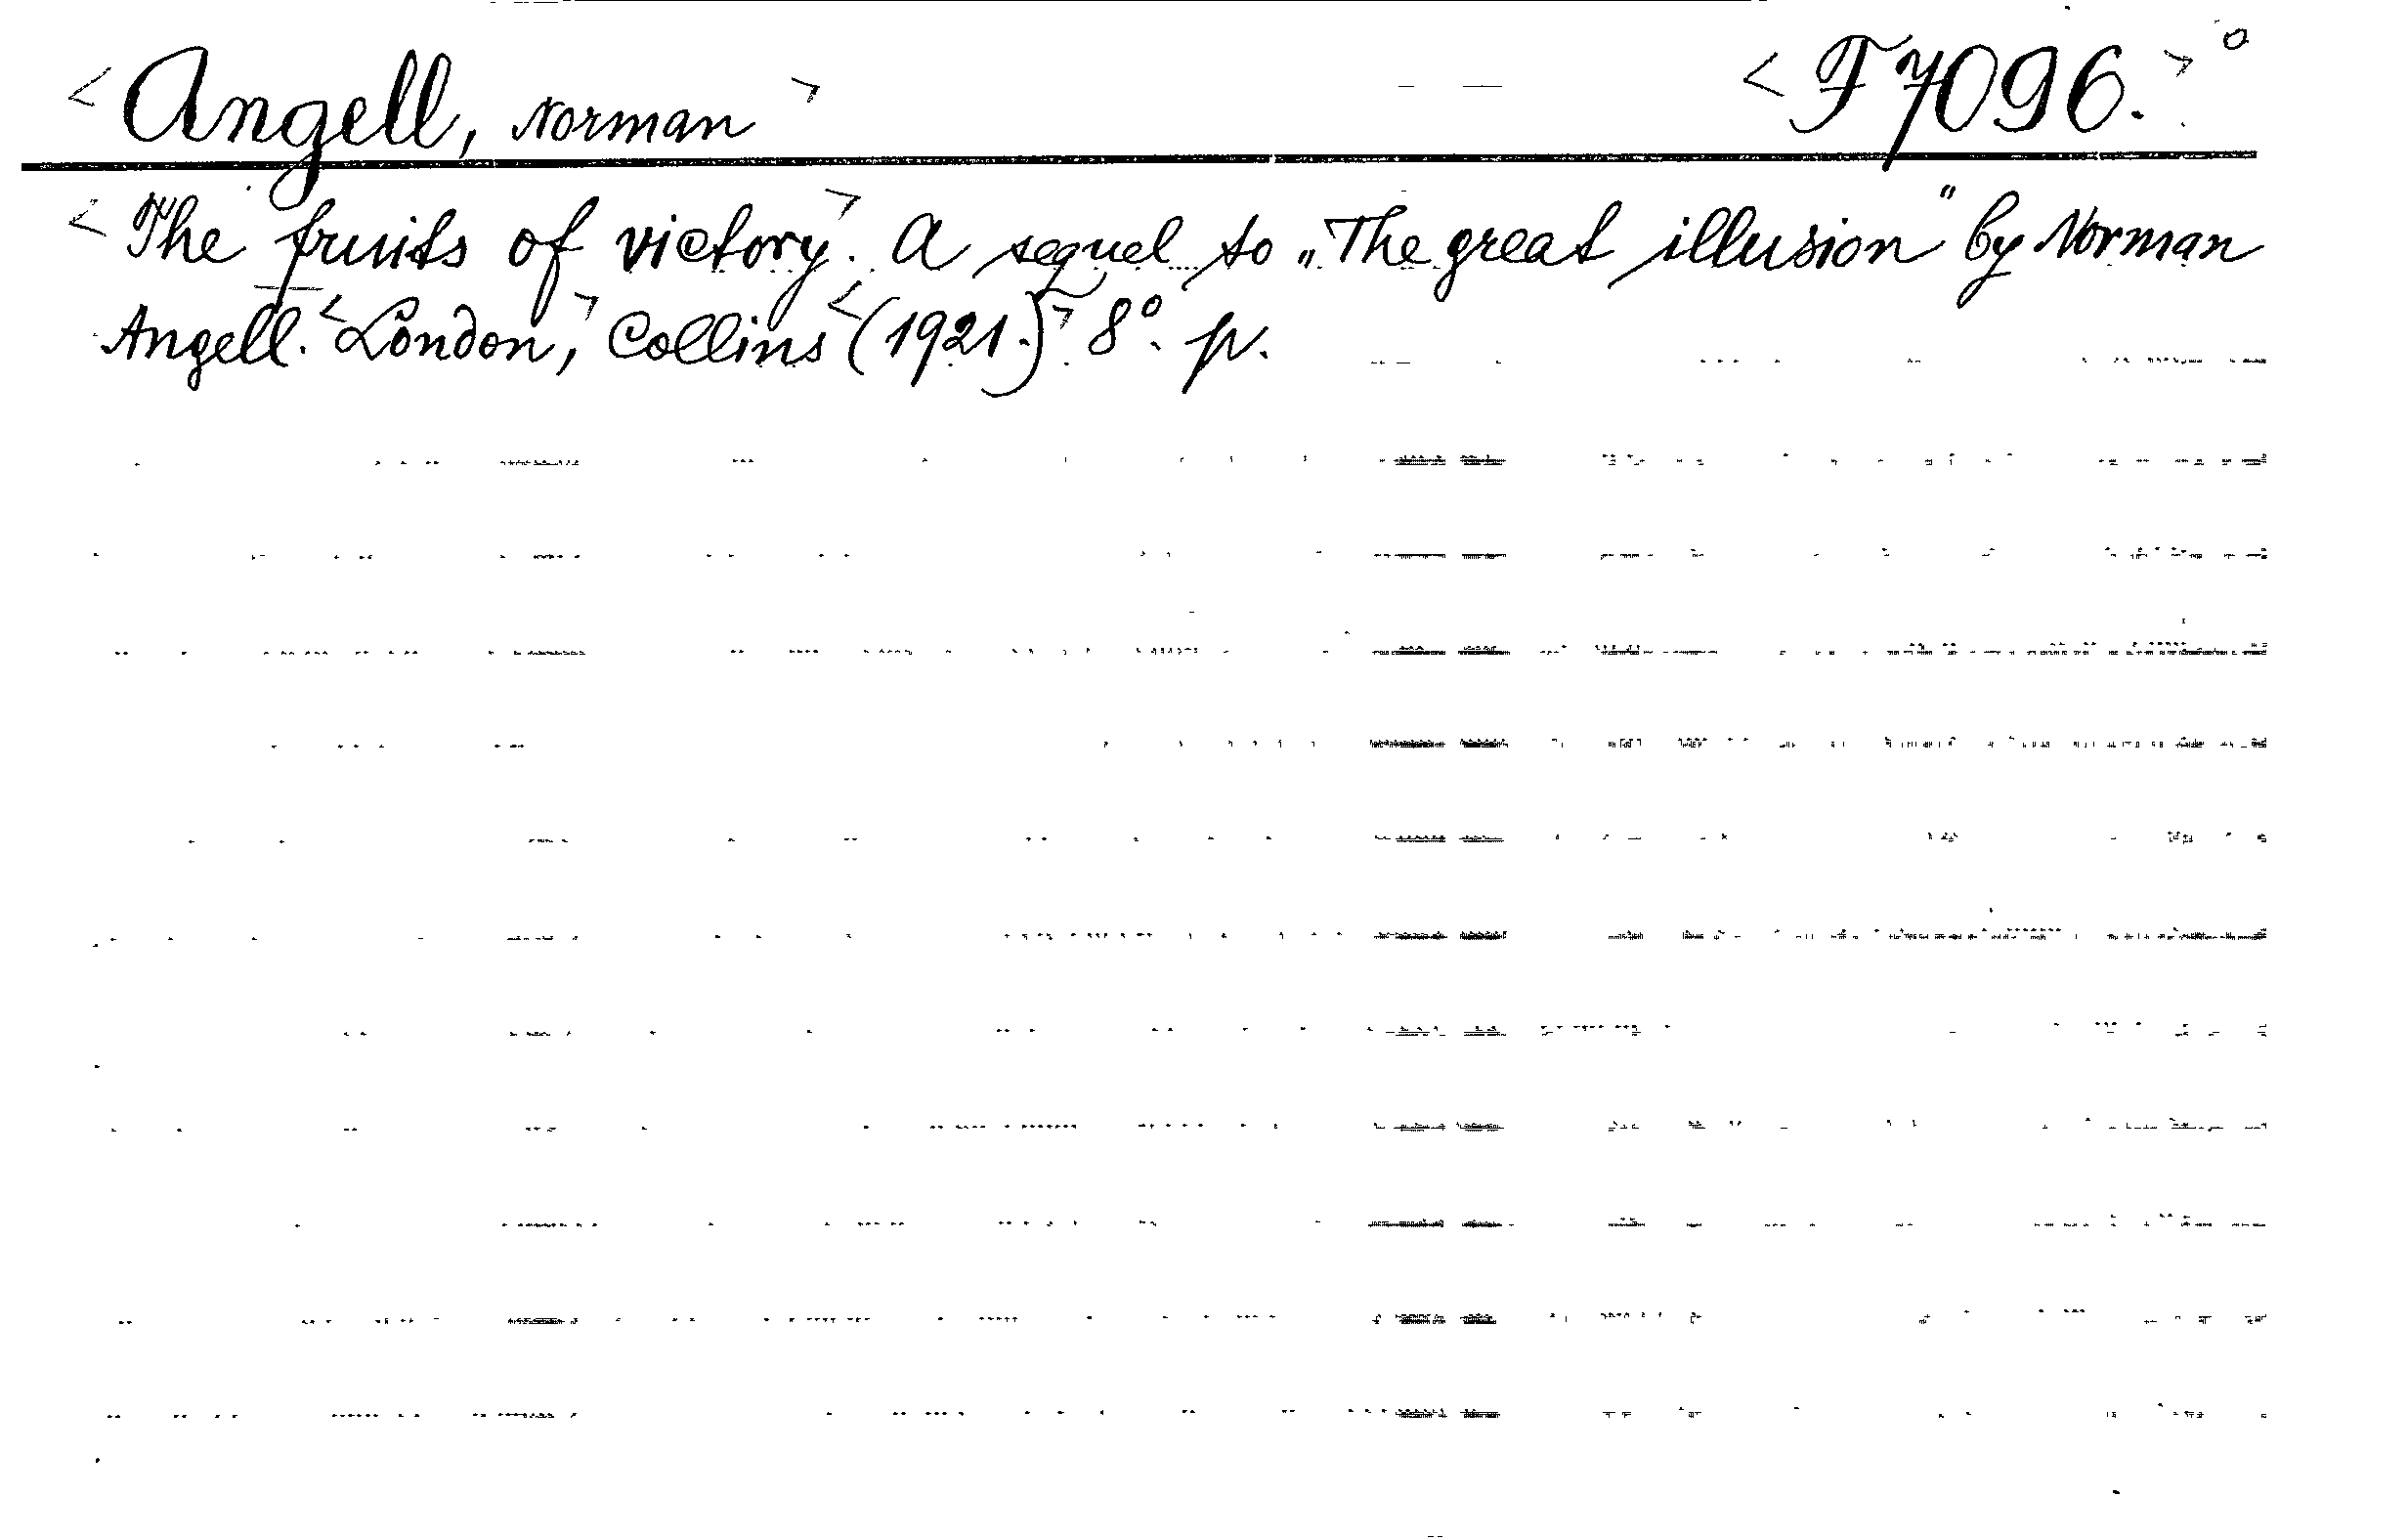 <Angell, Norman> <F 7096.>°
<The fruits of victory>. A sequel to „The great illusion" by Norman
Angell. <London,> Collins <(1921.)> 8°. p.